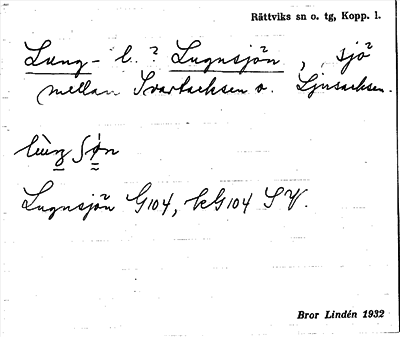 Rättviks sn o. tg, Kopp. l.
Lung- l. ? Lugnsjön, sjö
mellan Svartacksen o. Ljusacksen.
lùŋ ʃøn
Lugnsjön G104, kG104 SV.
Bror Lindén 1932